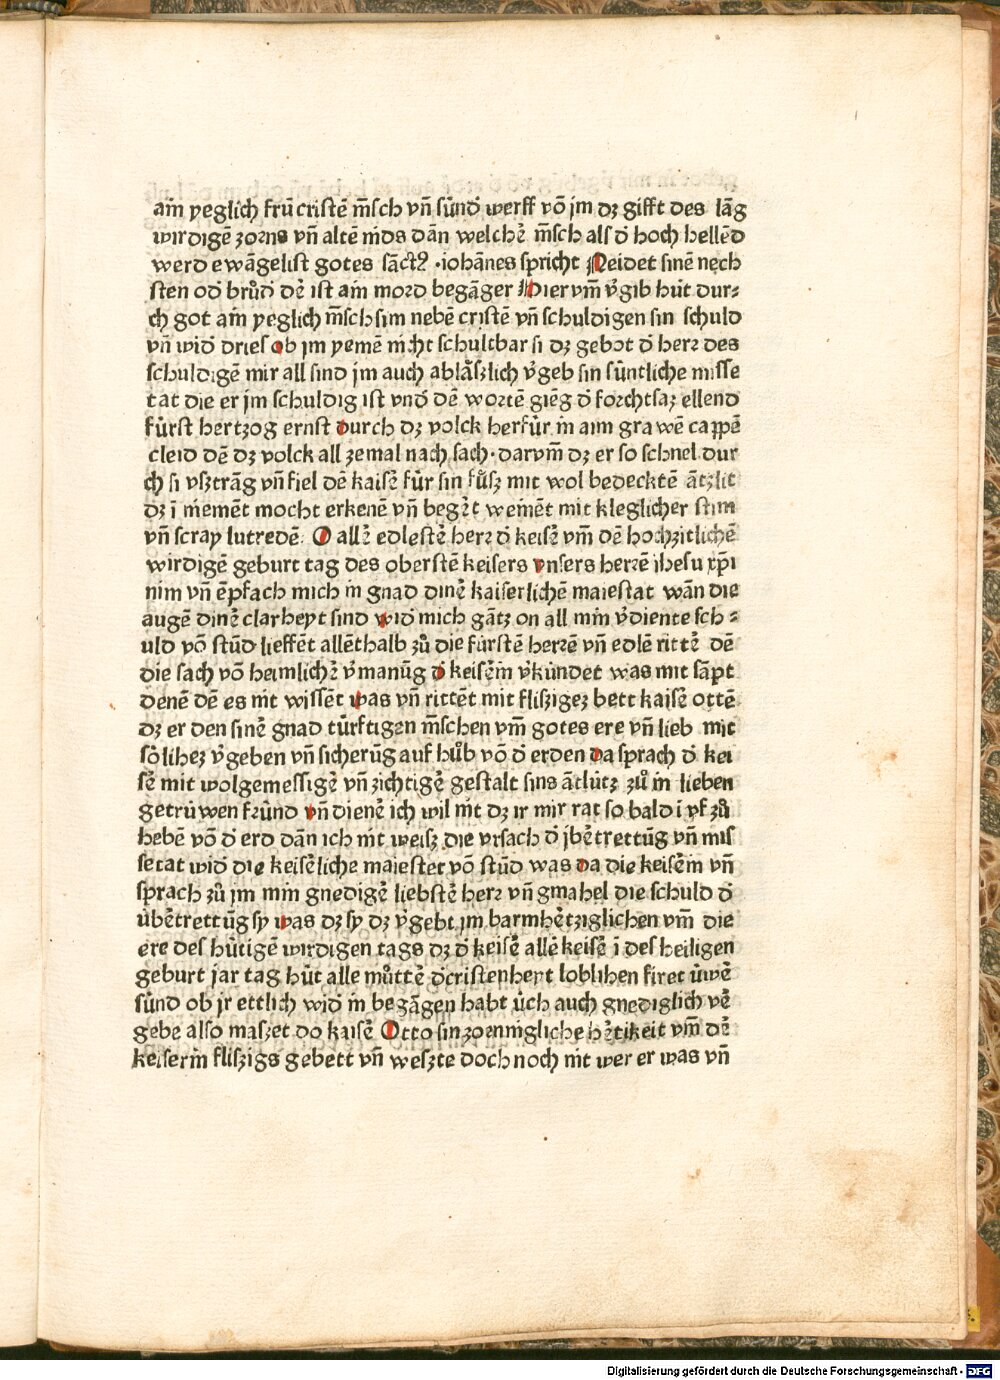 am̄ yeglich frū cristē m̄sch vn̄ sünd̄ werff vō jm dz gifft des lāg
wirdigē zorns vn̄ altē nids dān welchē m̄sch als d̄ hoch hellēd
werd ewāgelist gotes sāctꝰ ·iohānes spricht Neidet sinē nech
sten od̄ brůd̄ dē ist am̄ mord begāger Hier vm̄ v̄gib hüt dur⸗
ch got am̄ yeglich m̄sch sim nebē cristē vn̄ schuldigen sin schuld
vn̄ wid̄ dries ob jm yemē nicht schultbar si dz gebot d̄ herz des
schuldigē mir all sind jm auch abläszlich v̄geb sin süntliche misse
tat die er jm schuldig ist vnd̄ dē wortē giēg d̄ forchtsaz ellend
fürst hertzog ernst durch dz volck herfür in aim grawē cappē
cleid dē dz volck all zemal nach sach· darvm̄ dz er so schnel dur
ch si vsztrāg vn̄ fiel dē kaisē für sin fůsz mit wol bedecktē ātzlit
dz ī niemēt mocht erkenē vn̄ begēt weinēt mit kleglicher stim
vn̄ scray lutredē. O allē edlestē herz d̄ keisē vm̄ dē hochzitlichē
wirdigē geburt tag des oberstē keisers vnsers herzē ihesu xp̄i
nim vn̄ ēpfach mich in gnad dinē kaiserlichē maiestat wān die
augē dinē clarheyt sind wid̄ mich gātz on all min v̄diente sch⸗
uld vō stūd lieffēt allēthalb zů die fürstē herzē vn̄ edlē rittē dē
die sach vō heimlichē v̄manūg d̄ keisē̄in v̄kündet was mit sāpt
denē dē es nit wissēt was vn̄ rittēt mit fliszigez bett kaisē ottē
dz er den sinē gnad türftigen m̄schen vm̄ gotes ere vn̄ lieb mit
sölihez v̄geben vn̄ sicherūg auf hůb vō d̄ erden da sprach d̄ kei
sē mit wolgemessigē vn̄ zichtigē gestalt sins ātlütz zů in lieben
getrüwen fründ vn̄ dienē ich wil nit dz ir mir rat so bald ī vf zů
hebē vō d̄ erd dān ich nit weisz die vrsach d̄ jbētrettūg vn̄ mis
setat wid̄ die keisēliche maiestet vō stūd was da die keisēin vn̄
sprach zů jm min gnedigē liebstē herz vn̄ gmahel die schuld d̄
übētrettūg sy was dz sy dz v̄gebt jm barmhētziglichen vm̄ die
ere des hütigē wirdigen tags dz d̄ keisē allē keisē ī des heiligen
geburt jar tag hüt alle můttē d̄cristenheyt loblihen firet üwē
sünd ob jr ettlich wid̄ in begāgen habt üch auch gnediglich vē
gebe also maszet do kaisē Otto sin zoennigliche hētikeit vm̄ dē
keiserin fliszigs gebett vn̄ weszte doch noch nit wer er was vn̄
Digitalisierung gefördert durch die Deutsche Forschungsgemeinschaft - DFG